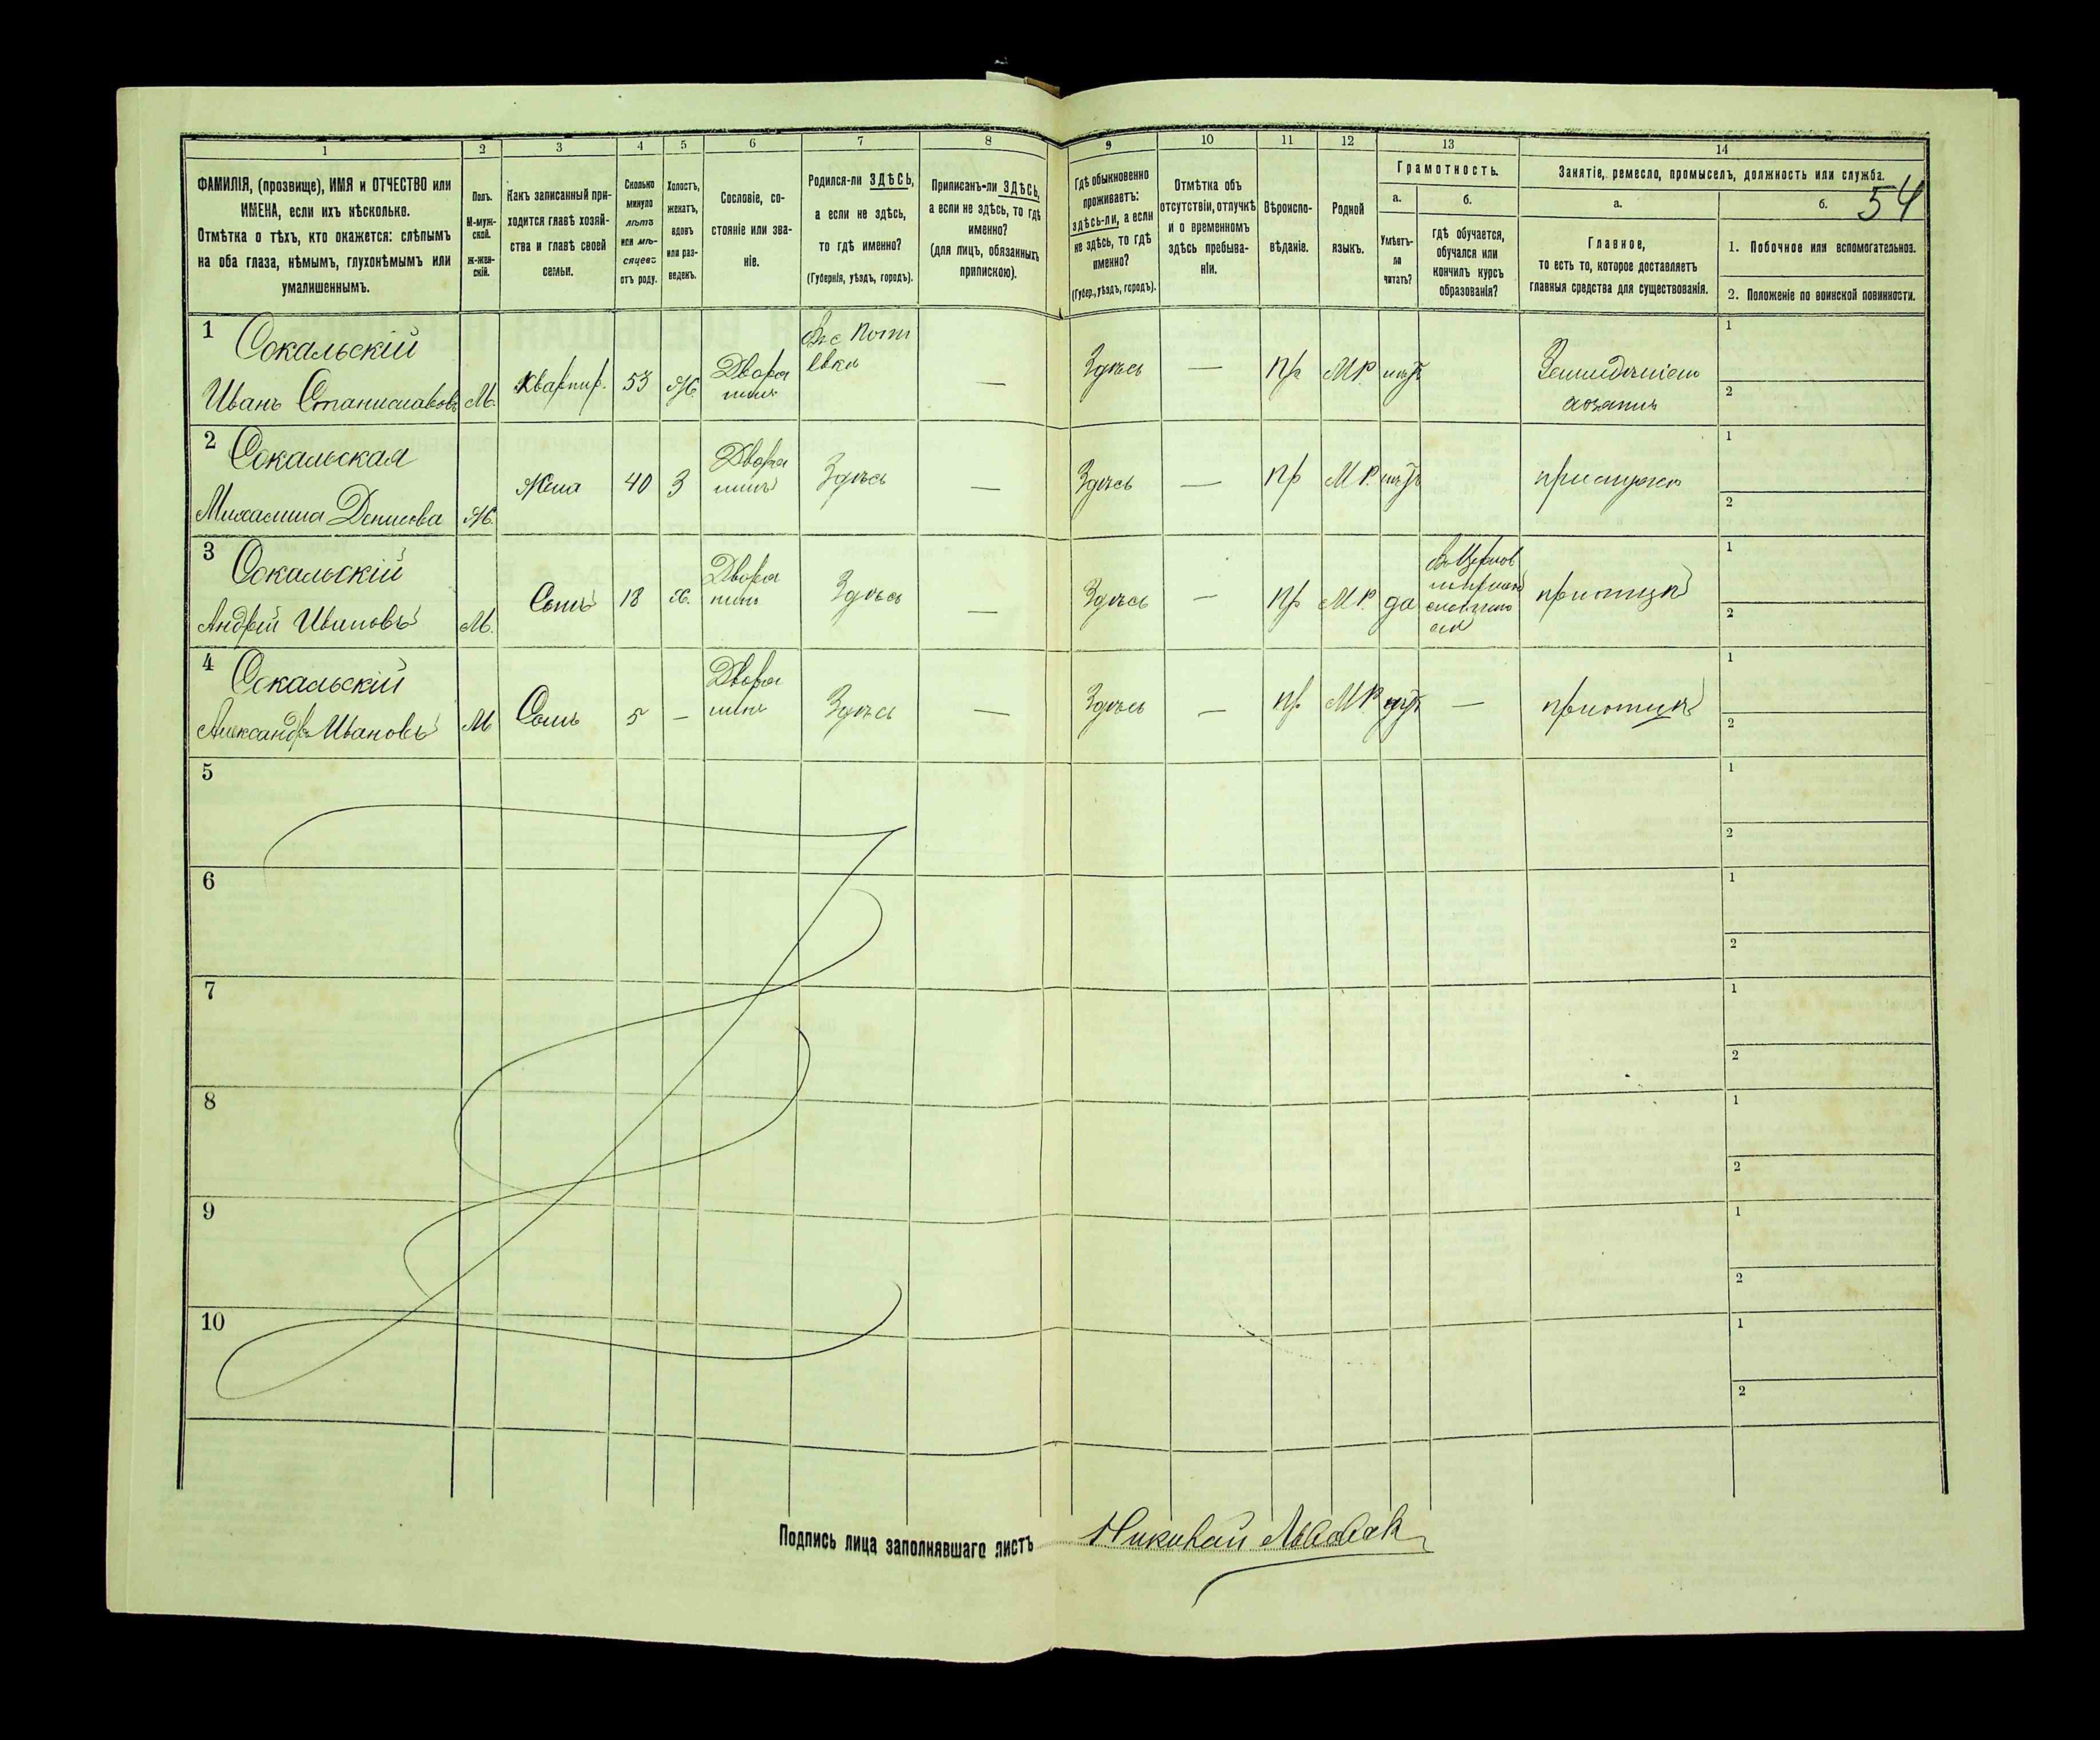 54
1 2 3 4 5 6 7 8 9 10 11 12 13 14
ФАМИЛІЯ, (прозвище), ИМЯ и ОТЧЕСТВО или
ИМЕНА, если ихъ нѣсколько.
Отмѣтка о тѣхъ, кто окажется: слѣпымъ
на оба глаза, нѣмымъ, глухонѣмымъ или
умалишеннымъ.
Полъ.
М-муж-
ской.
Ж-жен-
скій.
Какъ записанный при-
ходится главѣ хозяй-
ства и главѣ своей
семьи.
Сколько
минуло
лѣтъ
или мѣ-
сяцевъ
отъ роду.
Холостъ,
женатъ,
вдовъ
или раз-
веденъ.
Сословіе, со-
стояніе или зва-
ніе.
Родился-ли ЗДѢСЬ,
а если не здѣсь,
то гдѣ именно?
(Губернія, уѣздъ, городъ).
Приписанъ-ли ЗДѢСЬ,
а если не здѣсь, то гдѣ
именно?
(для лицъ, обязанныхъ
припискою).
Гдѣ обыкновенно
проживаетъ:
здѣсь-ли, а если
не здѣсь, то гдѣ
именно?
(Губер., уѣздъ, городъ).
Отмѣтка объ
отсутствіи, отлучкѣ
и о временномъ
здѣсь пребыва-
ніи.
Вѣроиспо-
вѣданіе.
Родной
языкъ.
Грамотность.
а.
Умѣетъ-
ли
читать?
б.
гдѣ обучается,
обучался или
кончилъ курсъ
образованія?
Занятіе, ремесло, промыселъ, должность или служба.
а.
Главное,
то есть то, которое доставляетъ
главныя средства для существованія.
б.
1. Побочное или вспомогательное.
2. Положеніе по воинской повинности.
1 Сокальскій
Иванъ Станиславовъ М. Квартир. 53 Ж. Дворя
нинъ — Здѣсь — пр М.Р. нѣтъ 1
2
2 Сокальская
Денисова Ж. Жена 40 З Дворя
нинъ Здѣсь — Здѣсь — пр М.Р. нѣтъ 1
2
3 Сокальскій
Андрей Ивановъ М. Сынъ 18 Х. Дворя
нинъ Здѣсь — Здѣсь — пр М.Р. да 1
2
4 Сокальскій
Александръ Ивановъ М Сынъ 5 — Дворя
нинъ Здѣсь — Здѣсь — пр. М.Р. нѣтъ — 1
2
5 1
2
6 1
2
7 1
2
8 1
2
9 1
2
10 1
2
Подпись лица заполнявшаго листъ Николай